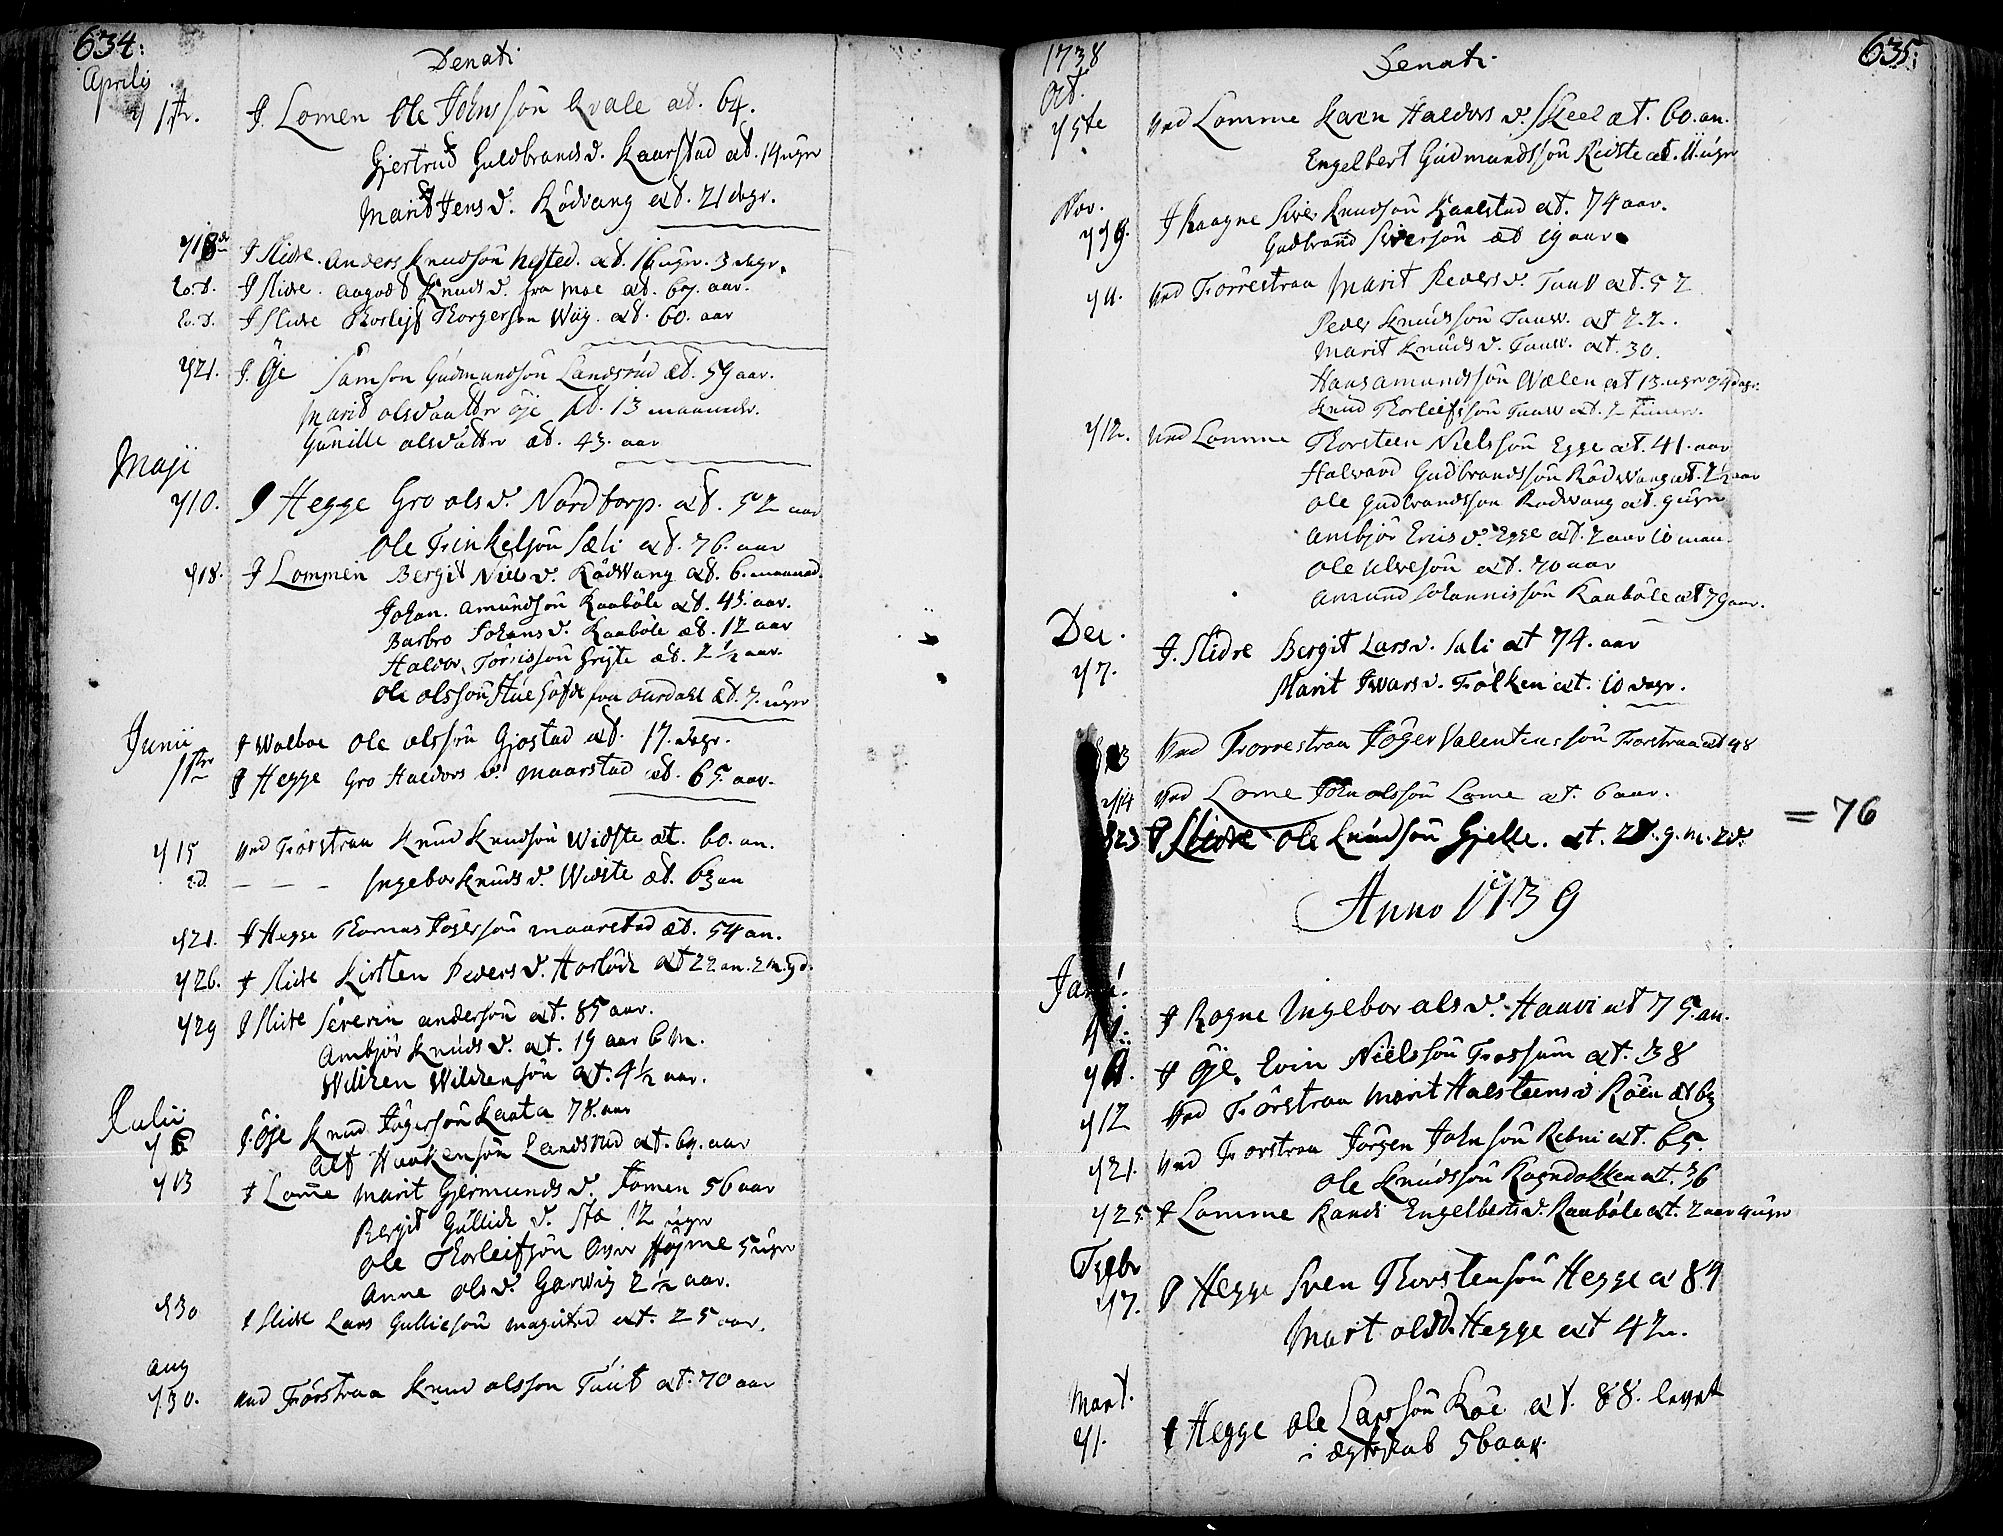 634:
Denati
Aprilis
I Lomen Ole Johnssön Qvale æt. 64.
Gjertrud Guldbrandsd. Kaarstad æt. 14 ugr
Marit Jensd. Rödvang æt. 21 dagr.
I Slidre. Anders Knudsön æt. 16 ugr. 3 dagr.
Eo. d. I Slidre. Aagodt Knudsd. fra Moe æt. 69. aar.
Eo. d. I Slidre Thorlejf Thorgersen Wiig. æt. 60. aar
y 21. I. Öje Samson Gudmundsön Landsrud æt. 59 aar.
Marit olsdaatter öje æt. 13 maaneder.
Gunille olsdatter æt. 43. aar
Maji
y 10. I Hegge Gro olsd. Nordtorp. æt. 52 aar
Ole Trinkelsön Sæli æt. 76. aar
y 18. I Lommen Bergit Nielsd. Rödwang æt. 6. maaned.
Johan. Amundsön Raaböle æt. 43. aar.
Barbro Johansd. Raaböle æt. 12 aar
Haldor Torrissön Gryte æt. 2 1/2 aar.
Ole olssön fra Aurdahl æt. 7. ugr
Junii
I Wolboe Ole olssön Gjöstad æt. 17. dagr.
I Hegge Gro Haldors d. Maarstad æt. 65. aar.
y 15 Ved Torstraa Knud Knudsön Widste æt. 60. an.
e.d. — — — Ingebor Knudsd. Widste æt. 63 an
y 21. I Hegge Thomas Jögersön Maarstad æt. 54 an.
y 26. I Slidre Kirsten Pedersd. æt 22 an. 2 m. 9 d.
y 29 I Slidre Severin andersön æt. 85 aar.
Ambjör Knudsd. æt. 19 aar 6 m.
Wilken Wilkensön æt. 4 1/2 aar.
Julii
I. Öje Knud Jögersön Kaata 78. aar
Alf Haakensön Landsrud æt. 69. aar
y 13 I Lome Marit Gjermundsd. Fomen 56 aar
Bergit Gullichd. Stæ 12 ugr
Ole Thorleifsön Øvre Höjme 5 ugr
Anne olsd. Garwig 2 1/2 aar.
y 30 I Slidre Lars Gulliesön æt. 25 aar.
Aug
y 30. Ved Torstraa Knud olsson Tuut æt. 70 aar
635:
1738
Denati
Oct.
y 5te Ved Lomme Karn Haldorsd. Skeel æt. 60. an.
Engelbert Gudmundssön Ridste æt. 11. ugr
Nov.
y 9 I Raagne Siver Knudsön Haalstad æt. 74 aar.
Gudbrand Siversön æt 19 aar
y 11. Ved Torrestraa Marit Pedersd. Tuuv æt. 52
Peder Knudssön Tuuv. æt 22.
Marit Knudsd. Tuuv. æt. 30.
Hans amundssön Wælen æt 13. ugr og dagr.
Knud Thorleifssön Tuuv æt. 2 timer.
y 12. Ved Lomme Thorsteen Nielssön Egge æt. 41. aar
Halvard Gudbrandssön Rödwang æt. 2 1/2 aar
Ole Gudbrandsson Rödwang æt. 9 ugr
Ambjör Erisd. Egge æt. 2 aar 10 man.
Ole ulvesön æt. 70 aar
Amund Johannissön Raaböle æt 79 aar.
Dec.
y 7. I. Slidre Bergit Larsd. Sæli æt 74. aar
Marit Iwarsd. Tolken æt. 10 dagr.
Ved Torrestraa Jöger Valentinssön Torstraa æt 48
y 14 Ved Lome John olssön Lome æt. 6 aar.
y 23 I Slidre Ole Knudsön Gjelle. æt. 28. 9. m. 2 d.
= 76
Anno 1739
I Rogne Ingebor alsd. Haavi æt 75. an.
I Öje. Evin Nielssön Fossum æt. 38
y 12 Ved Torstraa Marit Halsteensd Röen æt 63
y 21. Ved Torstraa Jörgen Johnsön Rebni æt. 65.
Ole Knudssön Rogndokken æt. 36
y 25. I Lomme Randi Engelbertsd. Raaböle æt. 2 aar 9 ugr
Febr
y 7. I Hegge Sven Thorstensön Hegge æ 84
Marit olsd. Hegge æt 42.
Mart.
y 1. I Hegge Ole Larssön Röe æt. 88. levet
i ægteskab 56 aar.